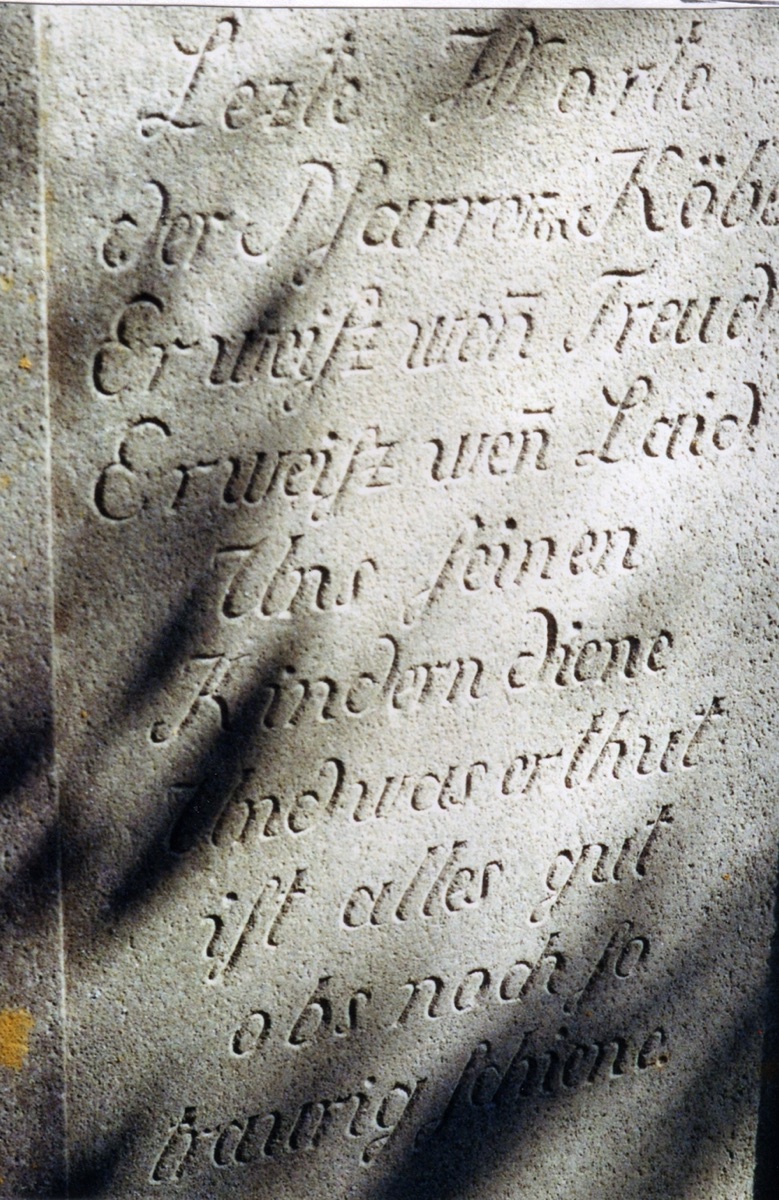 Lezte Worte
der Pfarrerin Köb
Er weißt wen̄ Freud
Er weißt wen̄ Laid
Uns seinen
Kindern diene
Und was er thut
ist alles gut
obs noch so
traurig schiene.